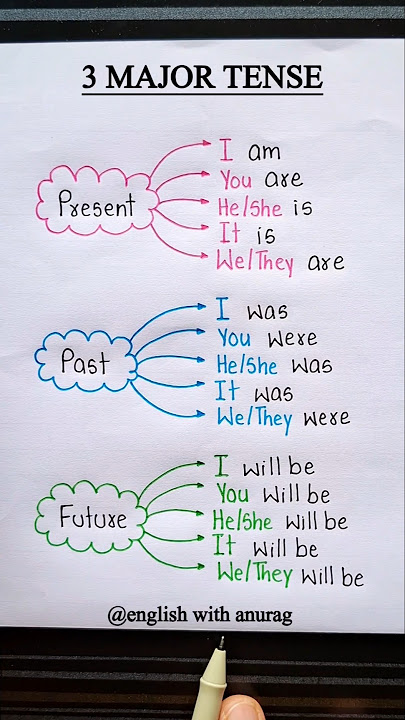 3 MAJOR TENSE
Present
I am
You are
He/She is
It is
We/They are
Past
I was
You were
He/She was
It was
We/They were
Future
I will be
You will be
He/She will be
It will be
We/They will be
@english with anurag